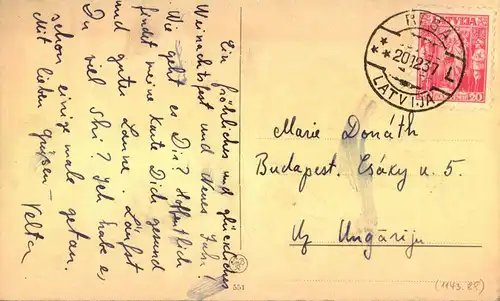 Ein fröhliches und glückliches
Weinachtsfest und Neues Jahr!
Wie geht es Dir? Hoffentlich
findet meine Karte Dich gesund
und guter Laune. Läufst
Du viel Shi? Ich habe es
schon einige male getan.
Mit lieben Grüßen-
Velta.
LATVIJA
20
RIGA
201237
L
LATVIJA
Marie Donáth
Budapest. Csáky u. 5.
Uz Ungāriju
551
(1143.88)